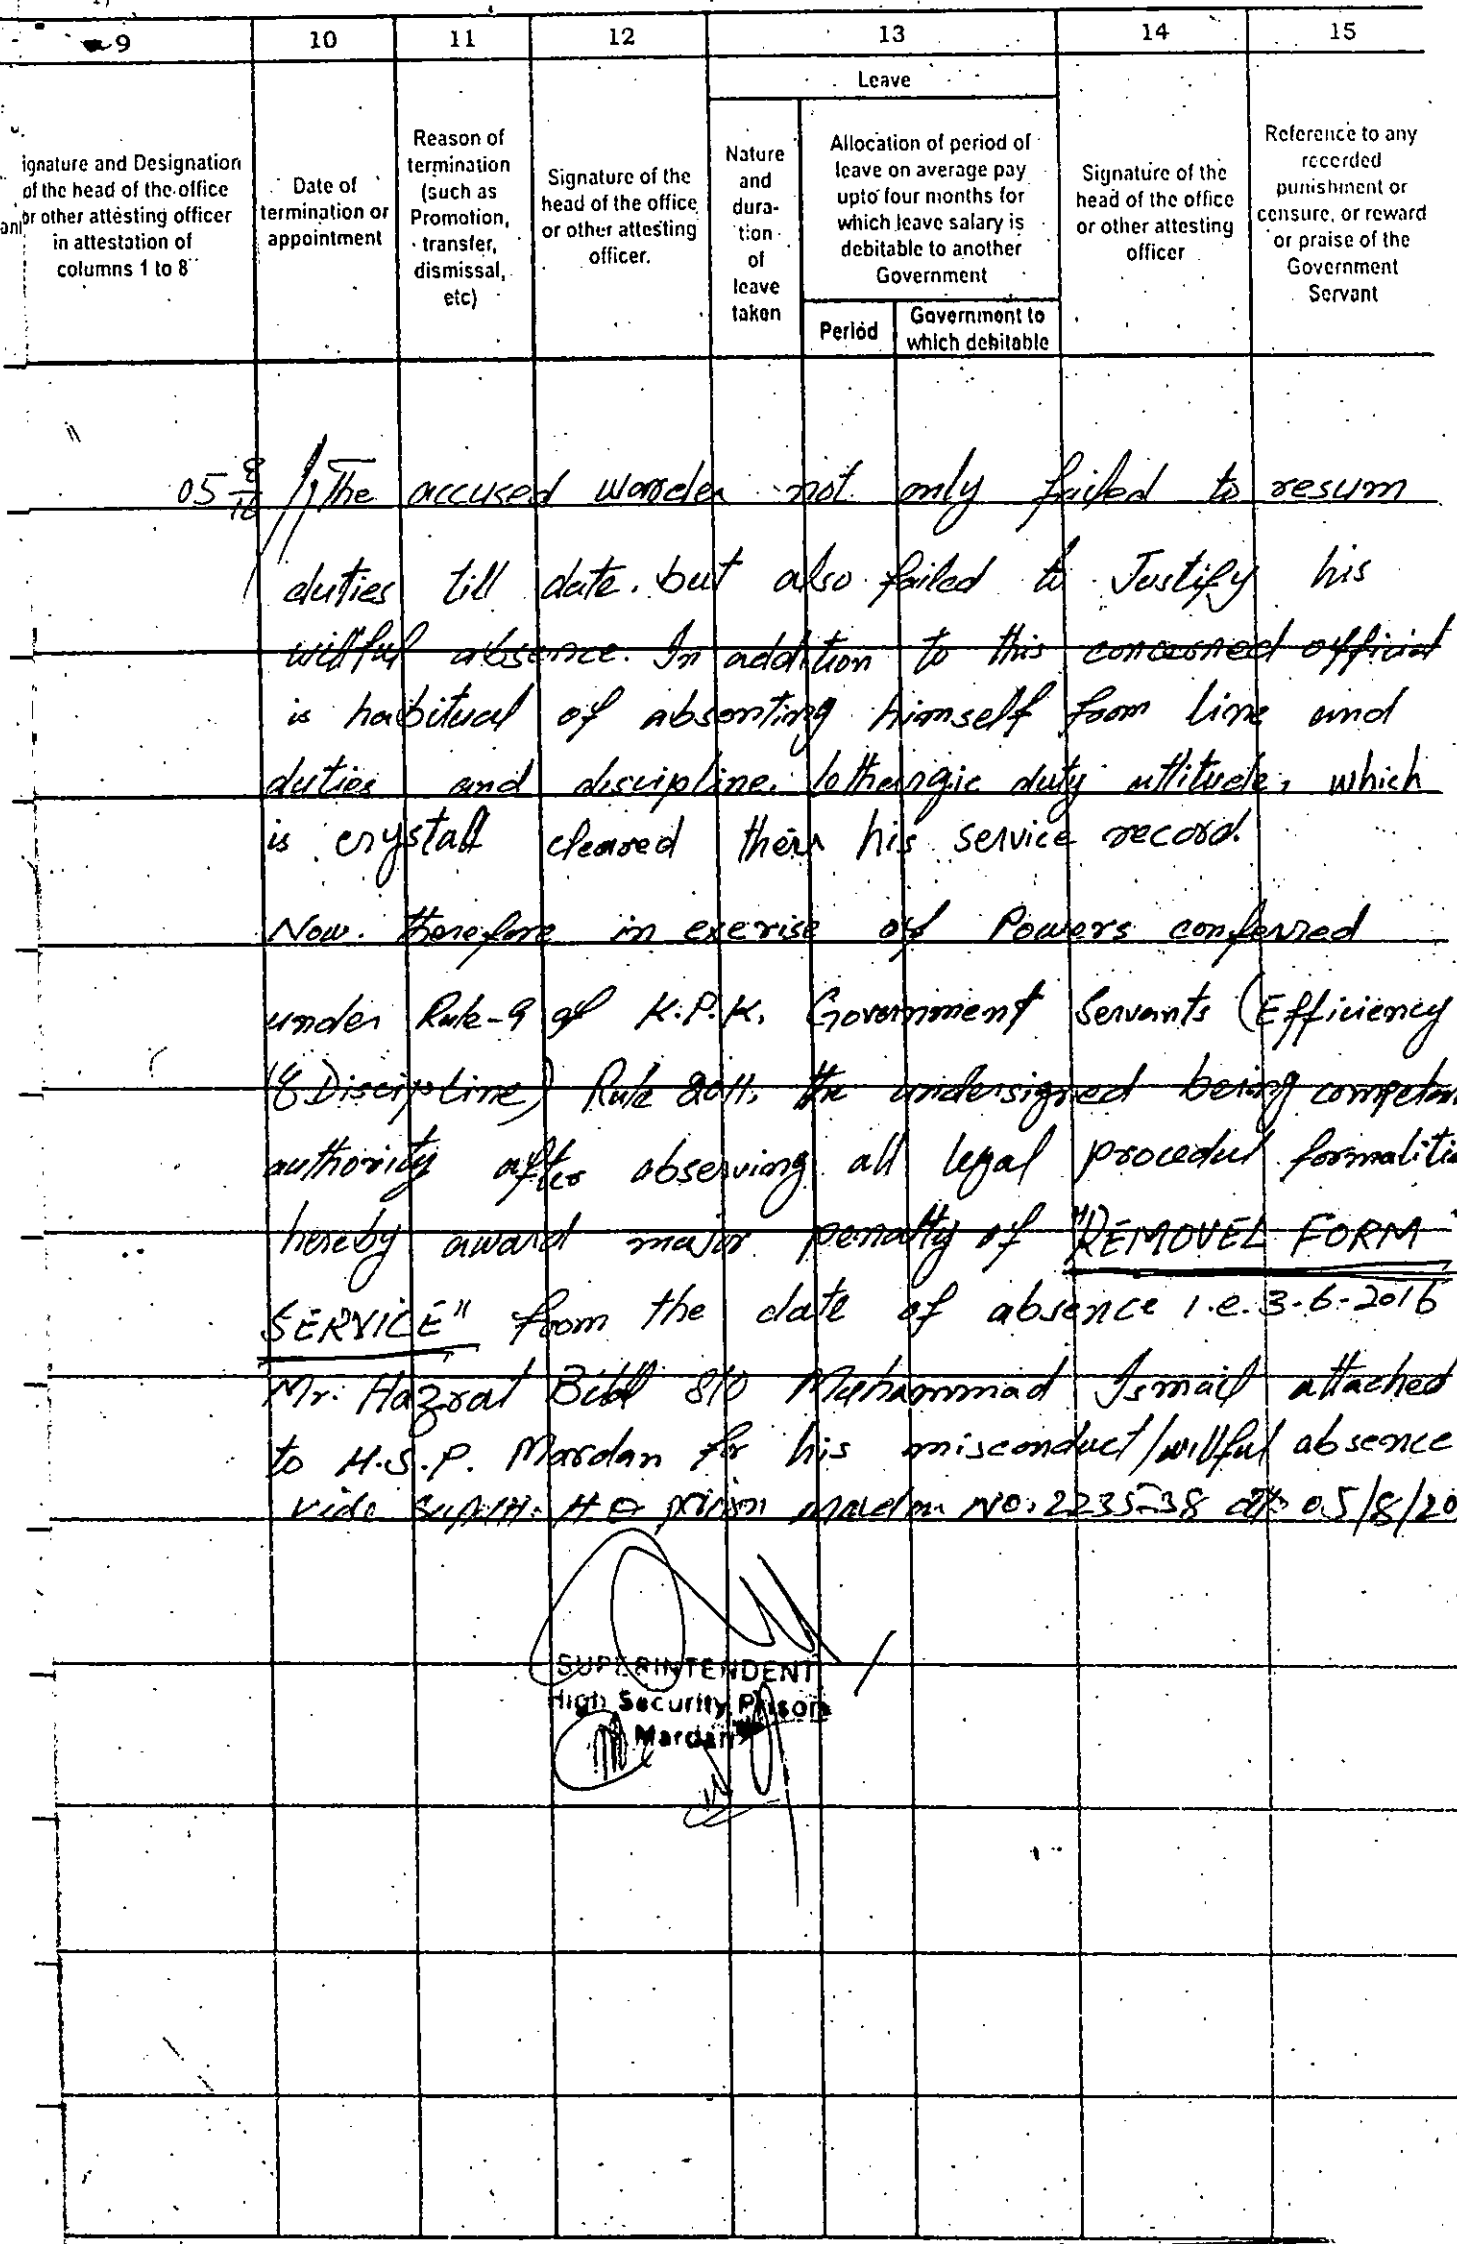 9 10 11 12 13 14 15
Leave
ignature and Designation
of the head of the office
or other attesting officer
in attestation of
columns 1 to 8
Date of
termination or
appointment
Reason of
termination
(such as
Promotion,
transfer,
dismissal,
etc)
Signature of the
head of the office
or other attesting
officer.
Nature
and
dura-
tion
of
leave
taken
Allocation of period of
leave on average pay
upto four months for
which leave salary is
debitable to another
Government
Period
Government to
which debitable
Signature of the
head of the office
or other attesting
officer
Reference to any
recorded
punishment or
censure, or reward
or praise of the
Government
Servant
05 8/16 The accused warder not only failed to resum
duties till date. but also failed to Justify his
willful absence. In addition to this concerned official
is habitual of absenting himself from line and
duties and discipline. lothergic duty attitude, which
is crystall cleared his service record.
Now. therefore in exerise of Powers conferred
under Rule-9 of K.P.K. Government Servants (Efficiency
& Discipline) Rule 2011, the undersigned being competan
authority after observing all legal procedul formalitie
hereby award major penalty of "REMOVEL FORM
SERVICE" from the date of absence i.e. 3-6-2016
Mr. Hazrat Bilal S/O Muhammad Ismail attached
to H.S.P. Mardan for his misconduct/willful absence
vide Supdt: H.S prison Mardan NO: 2235-38 dt: 05/8/20
SUPERINTENDENT
High Security Prison
Mardan